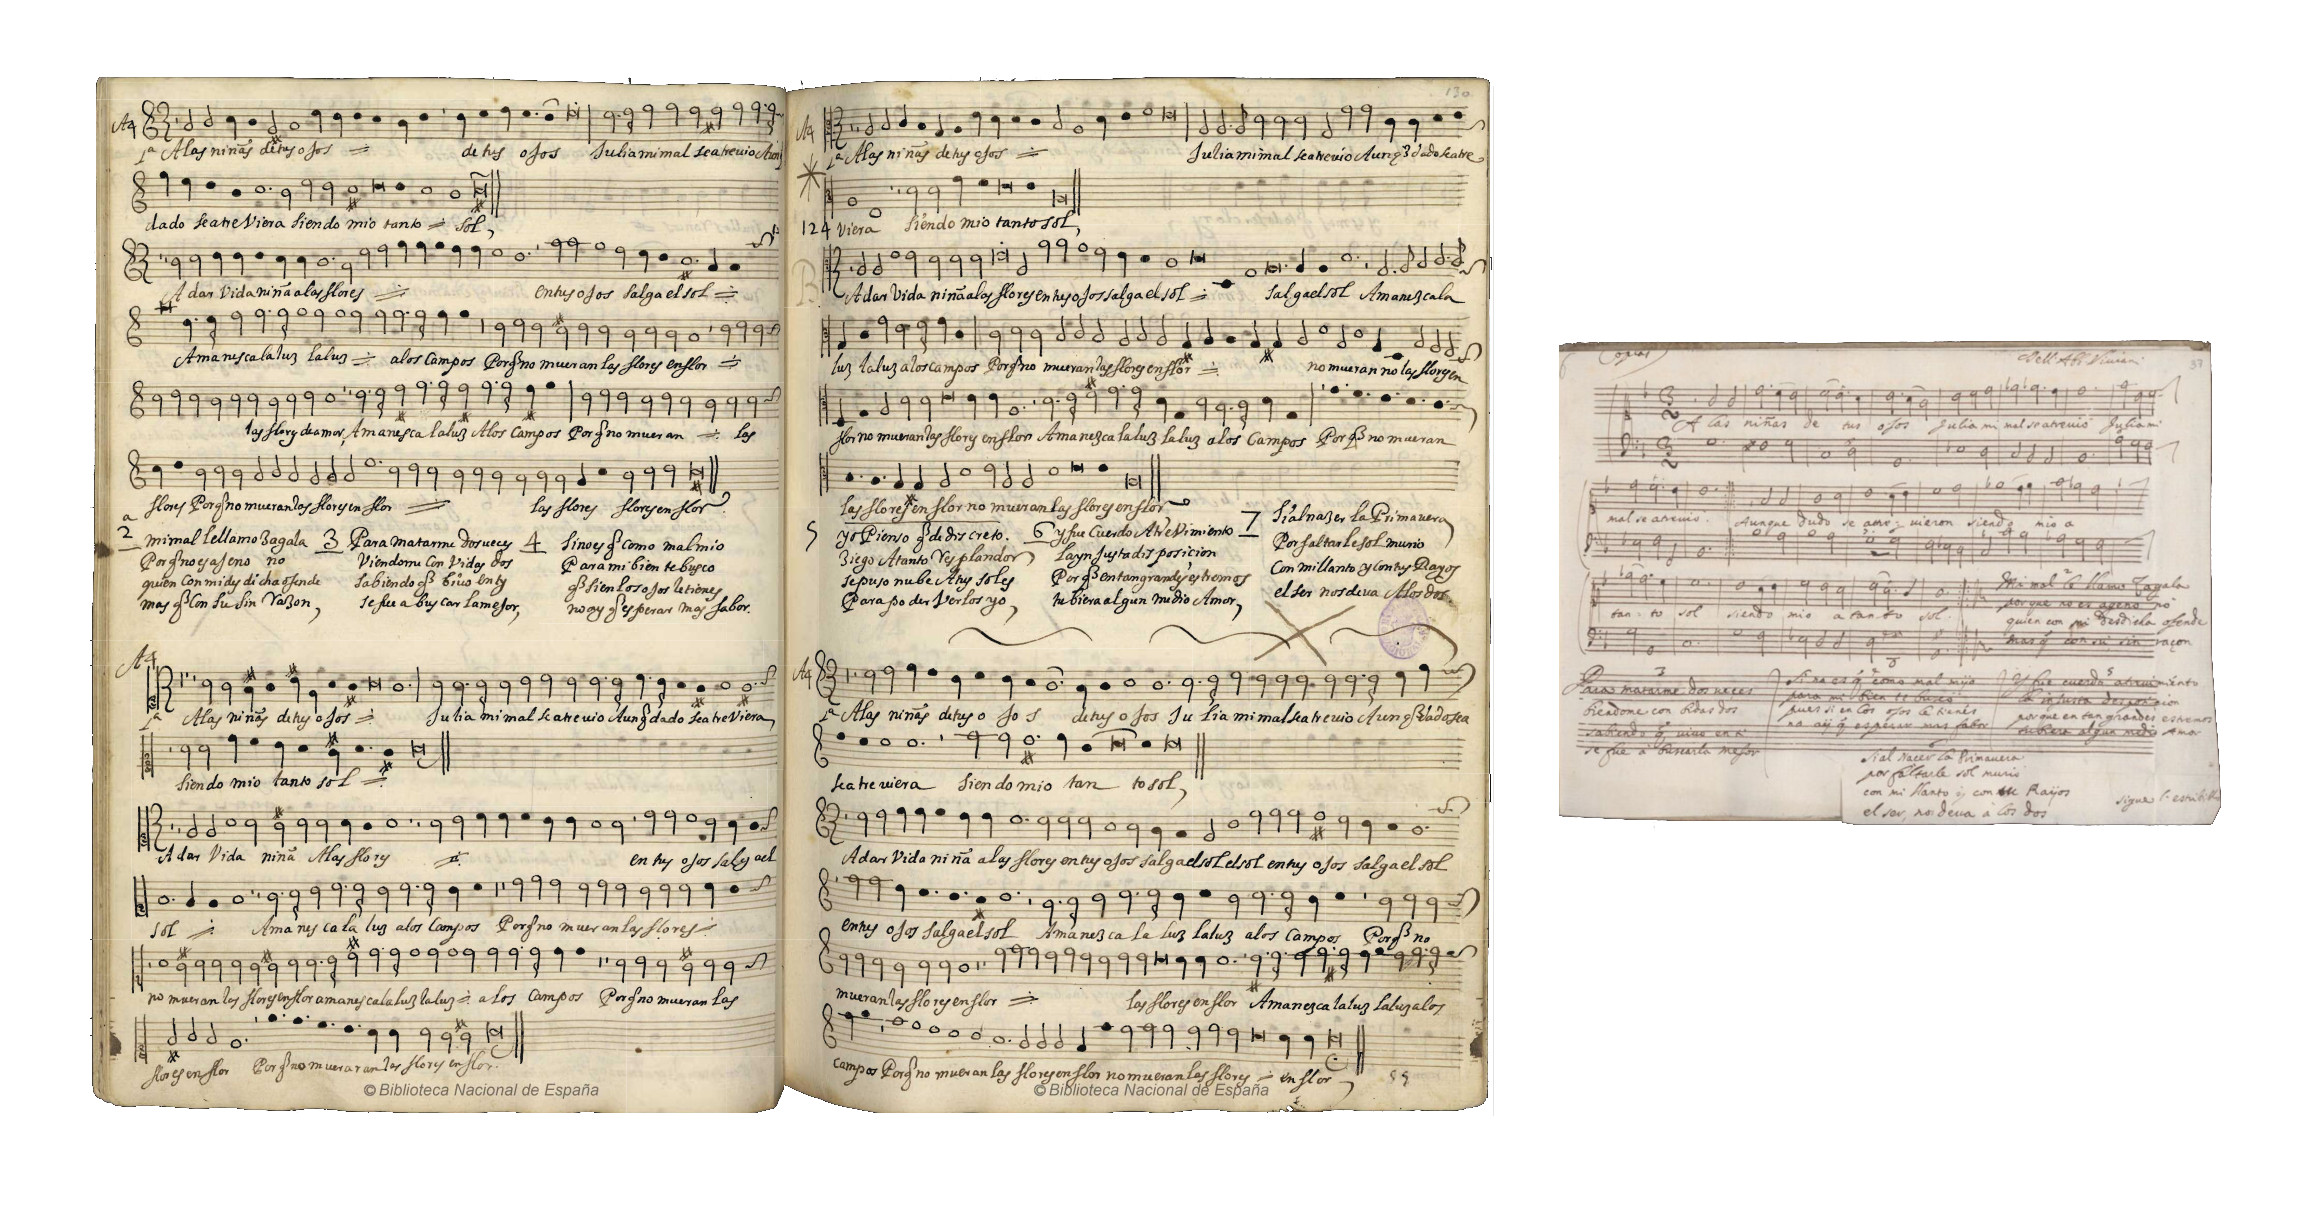 A4
1ª A las niñas de tus ojos = de tus ojos Julia mi mal se atrevio Aunq̃
dado se atreviera siendo mio tanto = sol,
A dar Vida niña a las flores = en tus ojos salga el sol =
Amanesca la luz la luz = a los campos Porq̃ no mueran las flores en flor =
las flores de amor, Amanesca la luz A los Campos Porq̃ no mueran = las
flores Porq̃ no mueran las flores en flor = las flores flores en flor
2ª mi mal le llamo Zagala
Porq̃ no es ajeno no
quien con mi desdicha ofende
mas q̃ Con su sin Razon,
3 Para matarme dos veces
Viendome Con Vidas dos
sabiendo q̃ bivo en ti
se fue a buscar la mejor,
4 sino es q̃ como mal mio
Para mi bien te busco
q̃ si en los ojos le tienes
no ay q̃ esperar mas favor.
A4
1ª A las niñas de tus ojos = Julia mi mal se atrevio Aunq̃ dado se atreviera,
siendo mio tanto sol =
A dar Vida niña A las flores = en tus ojos salga el
sol = Amanesca la luz a los campos Porq̃ no mueran las flores =
no mueran las flores en flor amanesca la luz la luz = a los campos Porq̃ no mueran las
flores en flor Porq̃ no mueran las flores en flor.
© Biblioteca Nacional de España
130
A4
1ª A las niñas de tus ojos = Julia mi mal se atrevio Aunq̃ dado se atre
124 viera siendo mio tanto sol,
A dar Vida niña a las flores en tus ojos salga el sol = salga el sol Amanezca la
luz la luz a los campos Porq̃ no mueran las flores en flor = no mueran no las flores en
flor no mueran las flores en flor Amanezca la luz la luz a los Campos Porq̃ no mueran
las flores en flor no mueran las flores en flor
5 yo Pienso q̃ de discreto.
Ziego A tanto Resplandor
se puso nube A tus soles
Para poder Verlos yo,
6 y fue Cuerdo AtreVimiento
la ynjusta disposicion
Porq̃ en tan grandes estremos
tubiera algun medio Amor,
7 si al nazer la Primavera
Por faltarle sol murio
Con mi llanto y con tus Rayos
el ser nos deva A los dos.
A4
1ª A las niñas de tus ojos de tus ojos Julia mi mal se atrevio Aunq̃ dado sea
se atreviera siendo mio tanto sol,
A dar Vida niña a las flores en tus ojos salga el sol el sol en tus ojos salga el sol
en tus ojos salga el sol Amanezca la luz la luz a los campos Porq̃ no
mueran las flores en flor = las flores en flor Amanezca la luz la luz a los
campos Porq̃ no mueran las flores en flor no mueran las flores = en flor,
© Biblioteca Nacional de España
Coplas
Dell Abb. Viviani
A las niñas de tus ojos Julia mi mal se atrevió Julia mi
mal se atrevio. Aunque dudo se atrevieron siendo mio a
tanto sol siendo mio a tanto sol.
2
Mi mal le llamo Zagala
porque no es ageno no
quien con mi desdicha ofende
mas q̃ con su sin raçon
3
Para matarme dos veces
biendome con bidas dos
sabiendo q̃ vive en ti
se fue a buscarla mejor
Si no es q̃ como mal mijo
para mi bien te busco
pues si en los ojos le tienes
no aÿ q̃ esperar mas fabor
5
Y fue cuerdo atrevimiento
la injusta disposicion
porque en tan grandes estremos
tubiera algun medio Amor
Si al nacer la Primavera
por faltarle sol murio
con mi llanto y con tu Raÿos
el ser nos deva à los dos